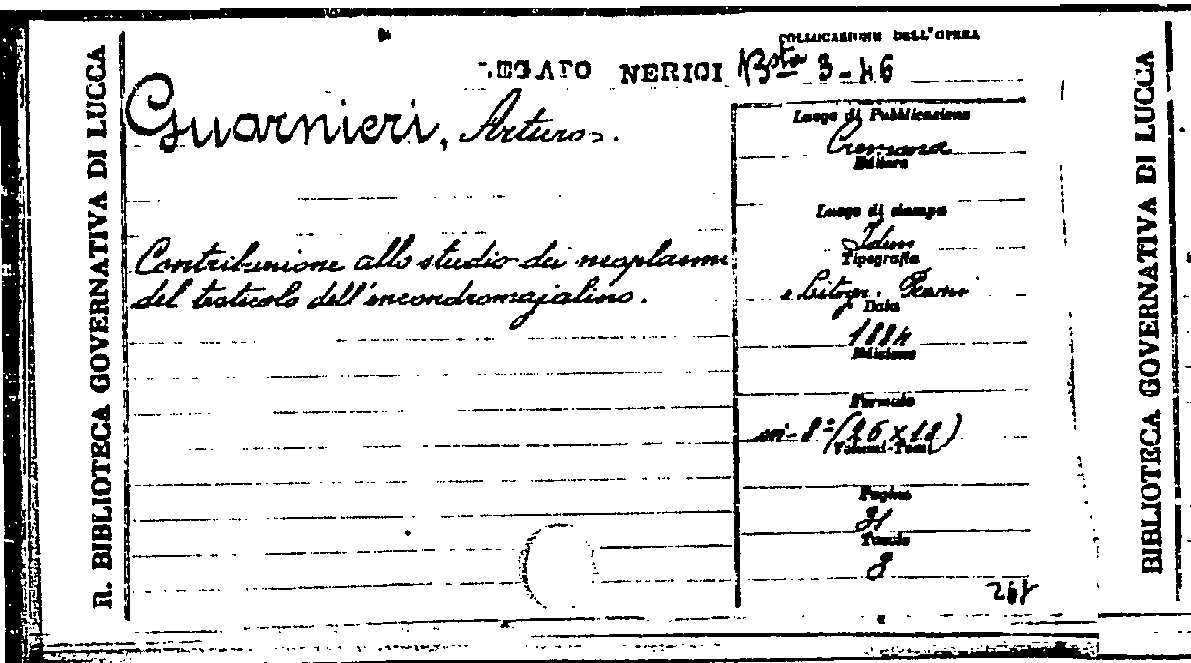 COLLOCAZIONE DELL'OPERA
LEGATO NERICI Bsta 3-46
Guarnieri, Arturo.
Luogo di Pubblicazione
Cremona
Editore
Luogo di stampa
Idem
Tipografia
e Litogr.
Data
1884
Edizione
Contribuzione allo studio dei neoplasmi
del testicolo dell'encondroma jalino.
Formato
in-8º (26x18)
Volumi-Tomi
Pagine
Tavole
R. BIBLIOTECA GOVERNATIVA DI LUCCA
BIBLIOTECA GOVERNATIVA DI LUCCA